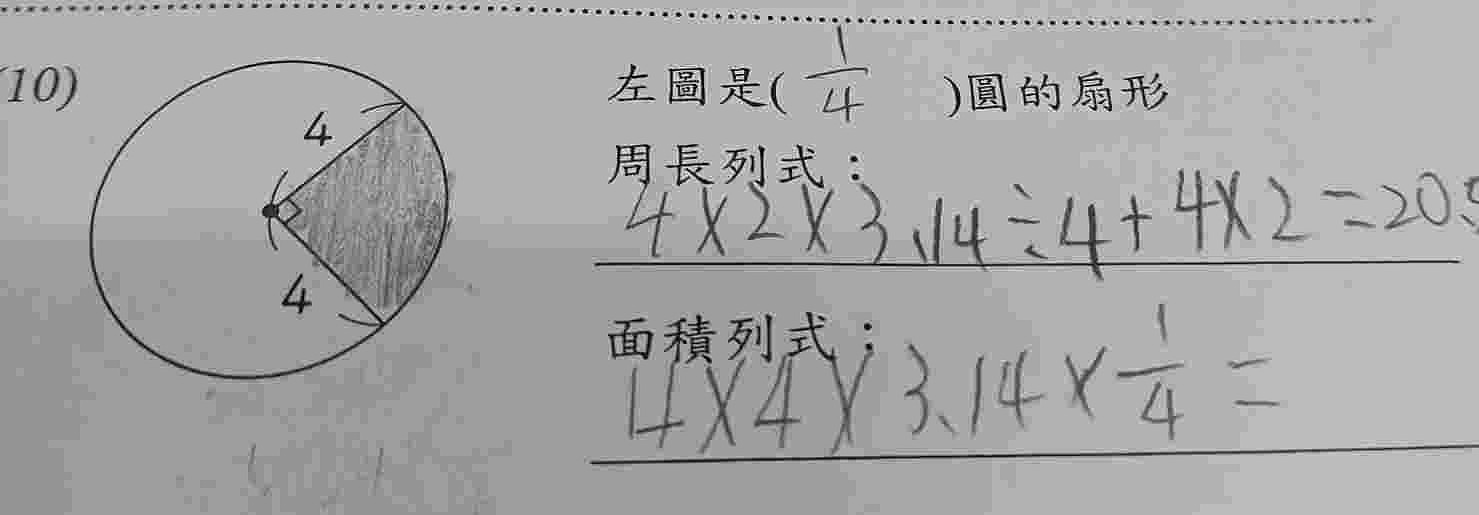 (10)
左圖是( 1/4 )圓的扇形
4
周長列式：
4×2×3.14÷4+4×2=20.
4
面積列式：
4×4×3.14×1/4=